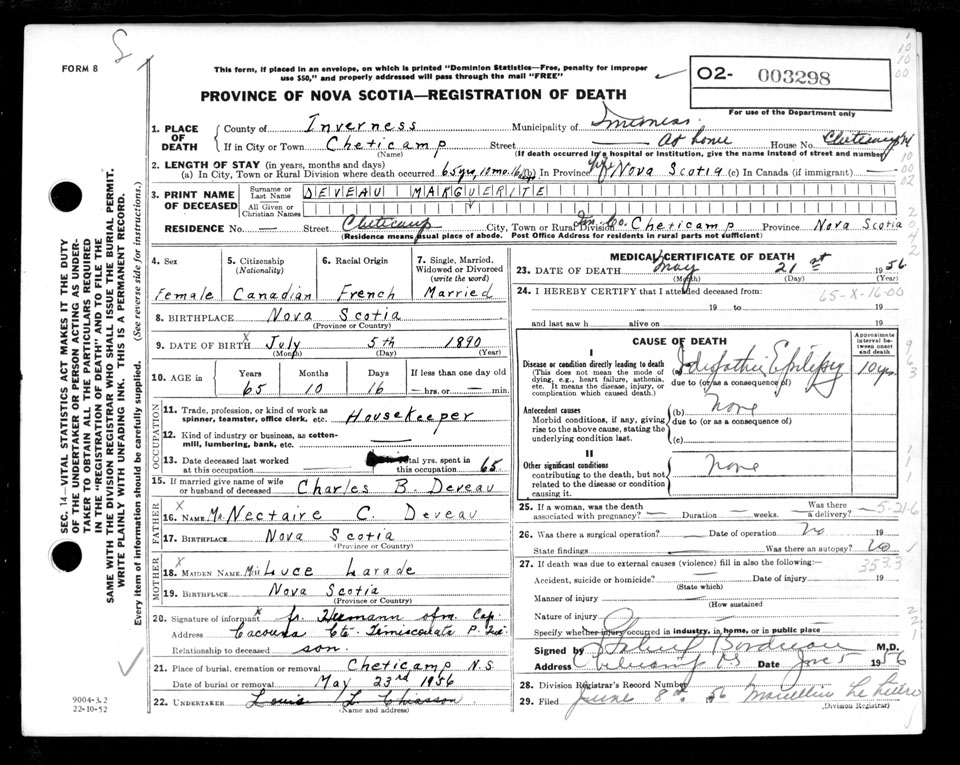 FORM 8
This form, if placed in an envelope, on which is printed "Dominion Statistics—Free, penalty for improper
use $50," and properly addressed will pass through the mail "FREE"
02- 003298
For use of the Department only
PROVINCE OF NOVA SCOTIA—REGISTRATION OF DEATH
1. PLACE OF DEATH { County of Inverness Municipality of Inverness
If in City or Town Cheticamp Street — at home House No. Cheticamp
(Name) (If death occurred in a hospital or institution, give the name instead of street and number)
2. LENGTH OF STAY (in years, months and days)
(a) In City, Town or Rural Division where death occurred 65 yrs, 10 mo. 16 days (b) In Province Nova Scotia (c) In Canada (if immigrant) —
3. PRINT NAME OF DECEASED { Surname or Last Name DEVEAU MARGUERITE
All Given or Christian Names
RESIDENCE No. — Street Cheticamp City, Town or Rural Division Inv. Co. Cheticamp Province Nova Scotia
(Residence means usual place of abode. Post Office Address for residents in rural parts not sufficient)
4. Sex
Female
5. Citizenship
(Nationality)
Canadian
6. Racial Origin
French
7. Single, Married,
Widowed or Divorced
(write the word)
Married
8. BIRTHPLACE Nova Scotia
(Province or Country)
9. DATE OF BIRTH July 5th 1890
(Month) (Day) (Year)
10. AGE in { Years Months Days If less than one day old
65 10 16 — hrs. or — min.
OCCUPATION
11. Trade, profession, or kind of work as
spinner, teamster, office clerk, etc. Housekeeper
12. Kind of industry or business, as cotton-
mill, lumbering, bank, etc. —
13. Date deceased last worked
at this occupation — total yrs. spent in
this occupation 65
15. If married give name of wife
or husband of deceased Charles B. Deveau
FATHER
16. NAME Mr Nectaire C. Deveau
17. BIRTHPLACE Nova Scotia
(Province or Country)
MOTHER
18. MAIDEN NAME Luce Larade
19. BIRTHPLACE Nova Scotia
(Province or Country)
20. Signature of informant fr. Hermann ofm. Cap.
Address Cacouna Cté. Témiscouata P. Qué.
Relationship to deceased son.
21. Place of burial, cremation or removal Cheticamp N.S.
Date of burial or removal May 23rd 1956
22. UNDERTAKER Louis L. Chiasson
(Name and address)
MEDICAL CERTIFICATE OF DEATH
23. DATE OF DEATH May 21st 1956
(Month) (Day) (Year)
24. I HEREBY CERTIFY that I attended deceased from:
65-X-16-00
19 to 19
and last saw h alive on 19
CAUSE OF DEATH
Approximate
interval be-
tween onset
and death
I
Disease or condition directly leading to death
(This does not mean the mode of
dying, e.g., heart failure, asthenia,
etc. It means the disease, injury, or
complication which caused death.)
(a) Idiopathic Epilepsy 10 yrs.
due to (or as a consequence of)
Antecedent causes
Morbid conditions, if any, giving
rise to the above cause, stating the
underlying condition last.
(b) none
due to (or as a consequence of)
(c)
II
Other significant conditions
contributing to the death, but not
related to the disease or condition
causing it.
none
25. If a woman, was the death
associated with pregnancy? — Duration — weeks. Was there a delivery? —
5-21-6
26. Was there a surgical operation? — Date of operation No 19
State findings — Was there an autopsy? No
27. If death was due to external causes (violence) fill in also the following:
353.3
Accident, suicide or homicide? — Date of injury 19
Manner of injury —
(How sustained)
Nature of injury —
Specify whether injury occurred in industry, in home, or in public place
Signed by M.D.
Address Cheticamp NS Date June 5 1956
28. Division Registrar's Record Number
29. Filed June 8th 1956
(Division Registrar)
SEC. 14—VITAL STATISTICS ACT MAKES IT THE DUTY
OF THE UNDERTAKER OR PERSON ACTING AS UNDER-
TAKER TO OBTAIN ALL THE PARTICULARS REQUIRED
IN THE "REGISTRATION OF DEATH" AND TO FILE THE
SAME WITH THE DIVISION REGISTRAR WHO SHALL ISSUE THE BURIAL PERMIT.
WRITE PLAINLY WITH UNFADING INK. THIS IS A PERMANENT RECORD.
Every item of information should be carefully supplied. (See reverse side for instructions.)
9004-3.2
22-10-52